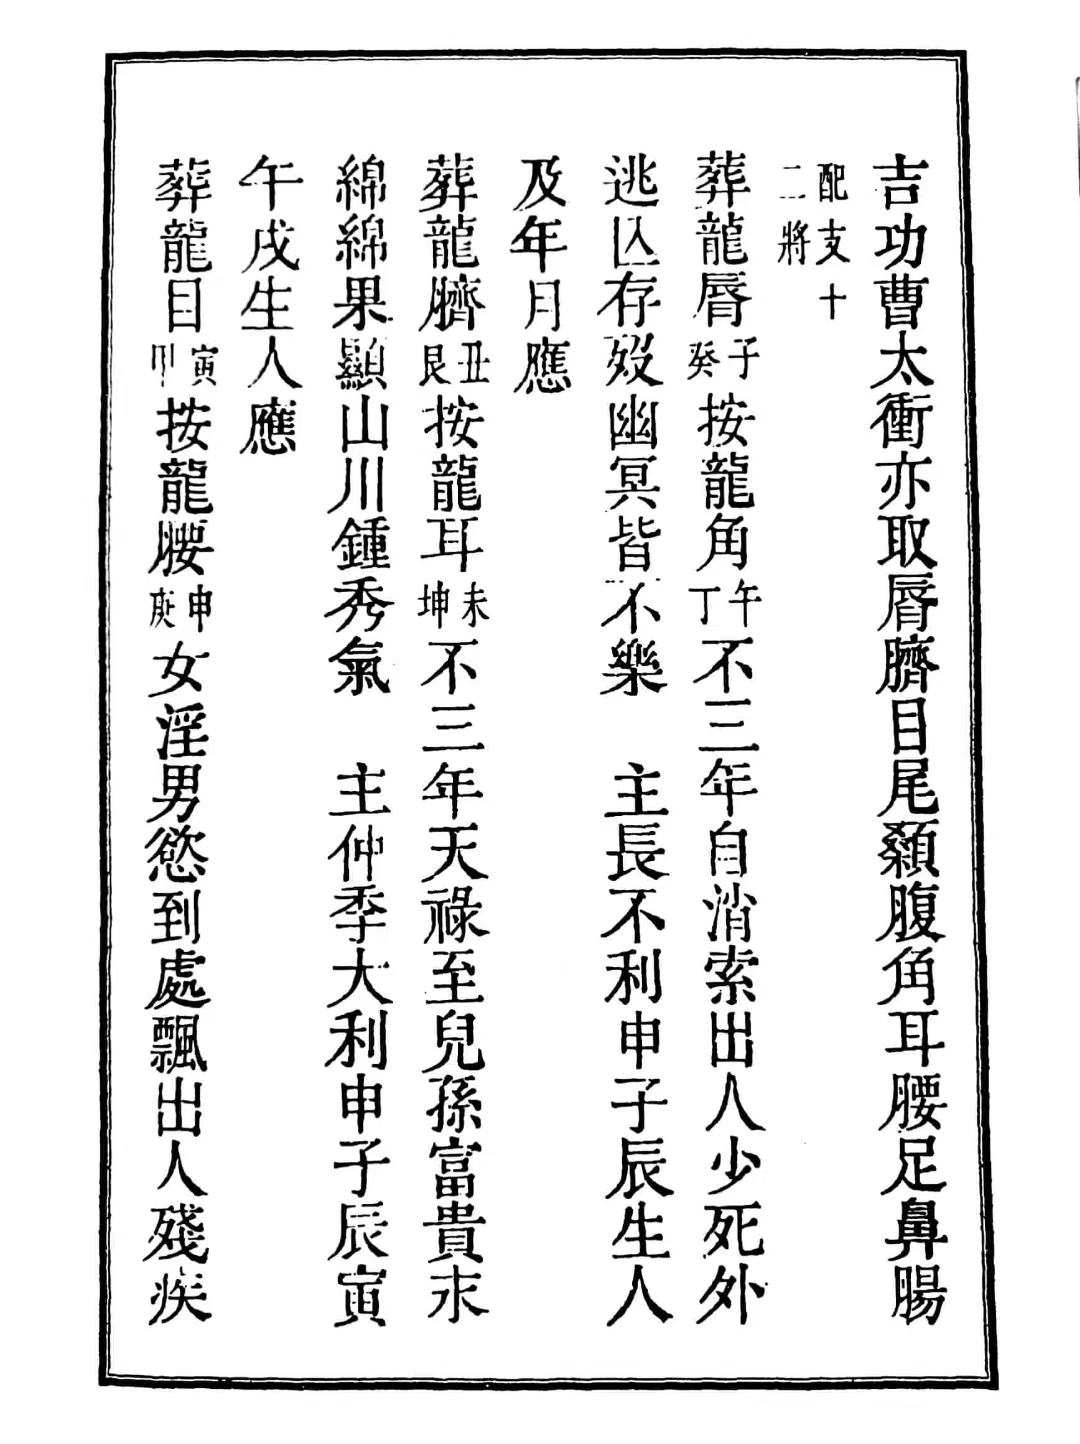 吉功曹太衝亦取脣臍目尾顙腹角耳腰足鼻腸
配支十
二將
葬龍脣子癸按龍角午丁不三年自消索出人少死外
逃亾存歿幽冥皆不樂　主長不利申子辰生人
及年月應
葬龍臍丑艮按龍耳未坤不三年天祿至兒孫富貴永
綿綿果顯山川鍾秀氣　主仲季大利申子辰寅
午戌生人應
葬龍目寅甲按龍腰申庚女淫男慾到處飄出人殘疾